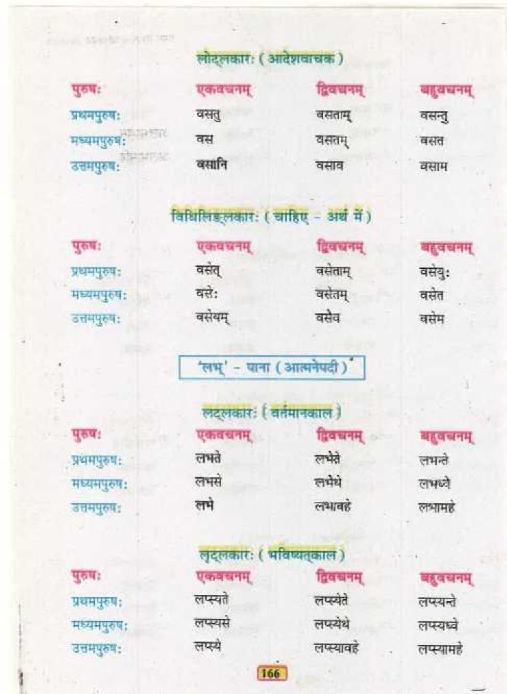 लोट्लकारः ( आदेशवाचक )
पुरुषः एकवचनम् द्विवचनम् बहुवचनम्
प्रथमपुरुषः वसतु वसताम् वसन्तु
मध्यमपुरुषः वस वसतम् वसत
उत्तमपुरुषः वसानि वसाव वसाम
विधिलिङ्लकारः ( चाहिए - अर्थ में )
पुरुषः एकवचनम् द्विवचनम् बहुवचनम्
प्रथमपुरुषः वसेत् वसेताम् वसेयुः
मध्यमपुरुषः वसेः वसेतम् वसेत
उत्तमपुरुषः वसेयम् वसेव वसेम
'लभ्' - पाना ( आत्मनेपदी )
लट्लकारः ( वर्तमानकाल )
पुरुषः एकवचनम् द्विवचनम् बहुवचनम्
प्रथमपुरुषः लभते लभेते लभन्ते
मध्यमपुरुषः लभसे लभेथे लभध्वे
उत्तमपुरुषः लभे लभावहे लभामहे
लृट्लकारः ( भविष्यत्काल )
पुरुषः एकवचनम् द्विवचनम् बहुवचनम्
प्रथमपुरुषः लप्स्यते लप्स्येते लप्स्यन्ते
मध्यमपुरुषः लप्स्यसे लप्स्येथे लप्स्यध्वे
उत्तमपुरुषः लप्स्ये लप्स्यावहे लप्स्यामहे
166